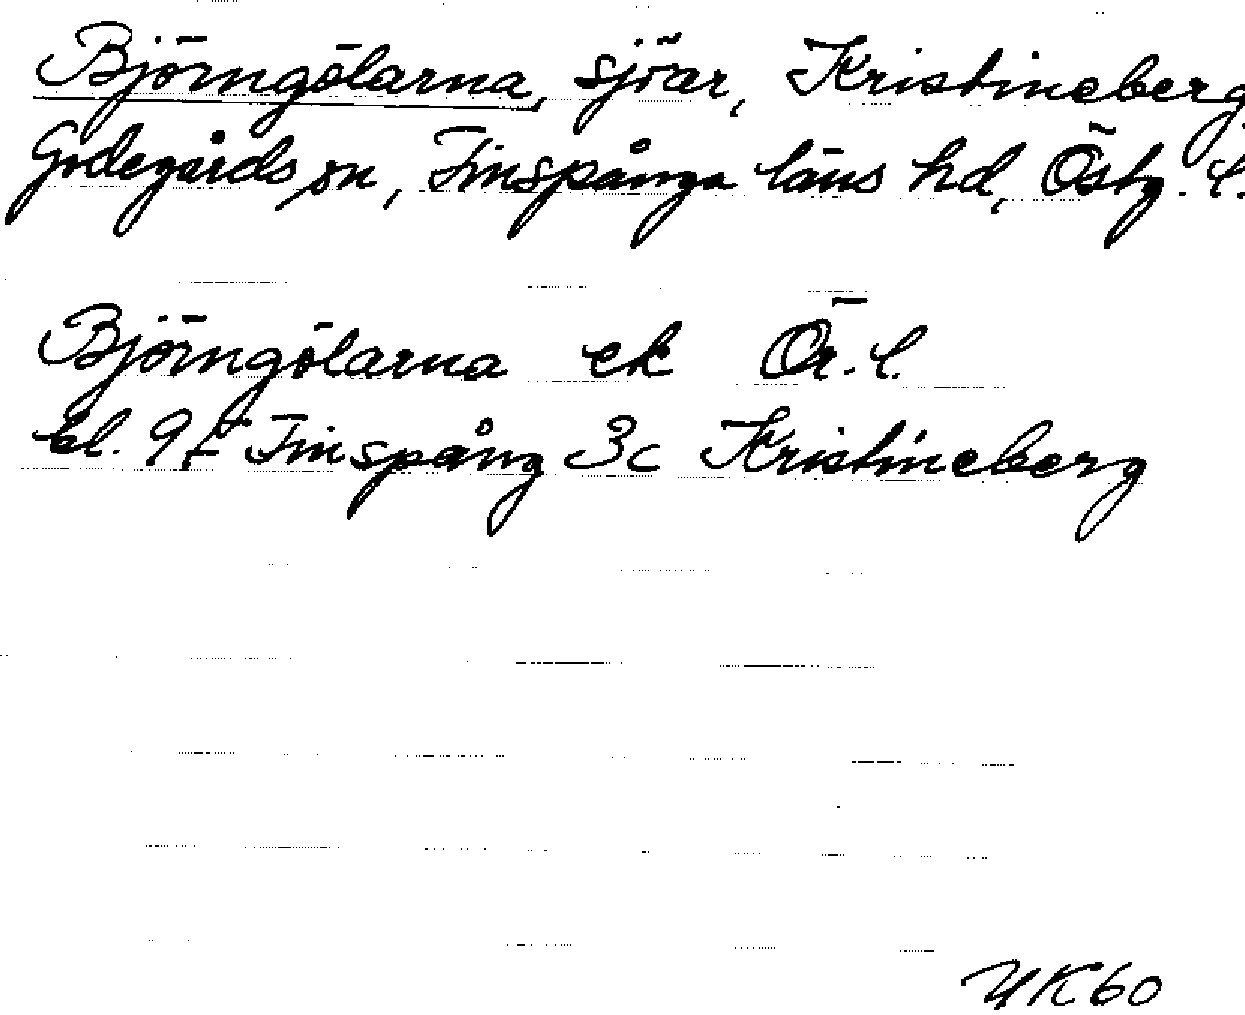 Björngölarna, sjöar, Kristineberg,
Godegårds sn, Finspånga läns hd, Östg. l.
Björngölarna ek Ör. l.
bl. 97 Finspång 3c Kristineberg
UK60